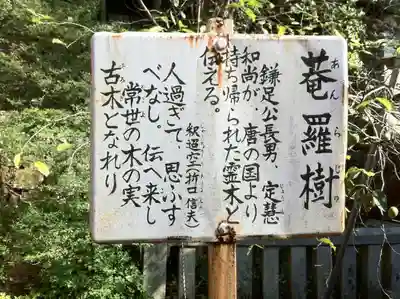 菴羅樹
あんらじゅ
鎌足公長男、定慧
和尚が、唐の国より
持ち帰られた霊木と
伝える。
人過ぎて、思ふす
べなし。伝へ来し
常世の木の実
古木となれり
釈迢空(折口信夫)